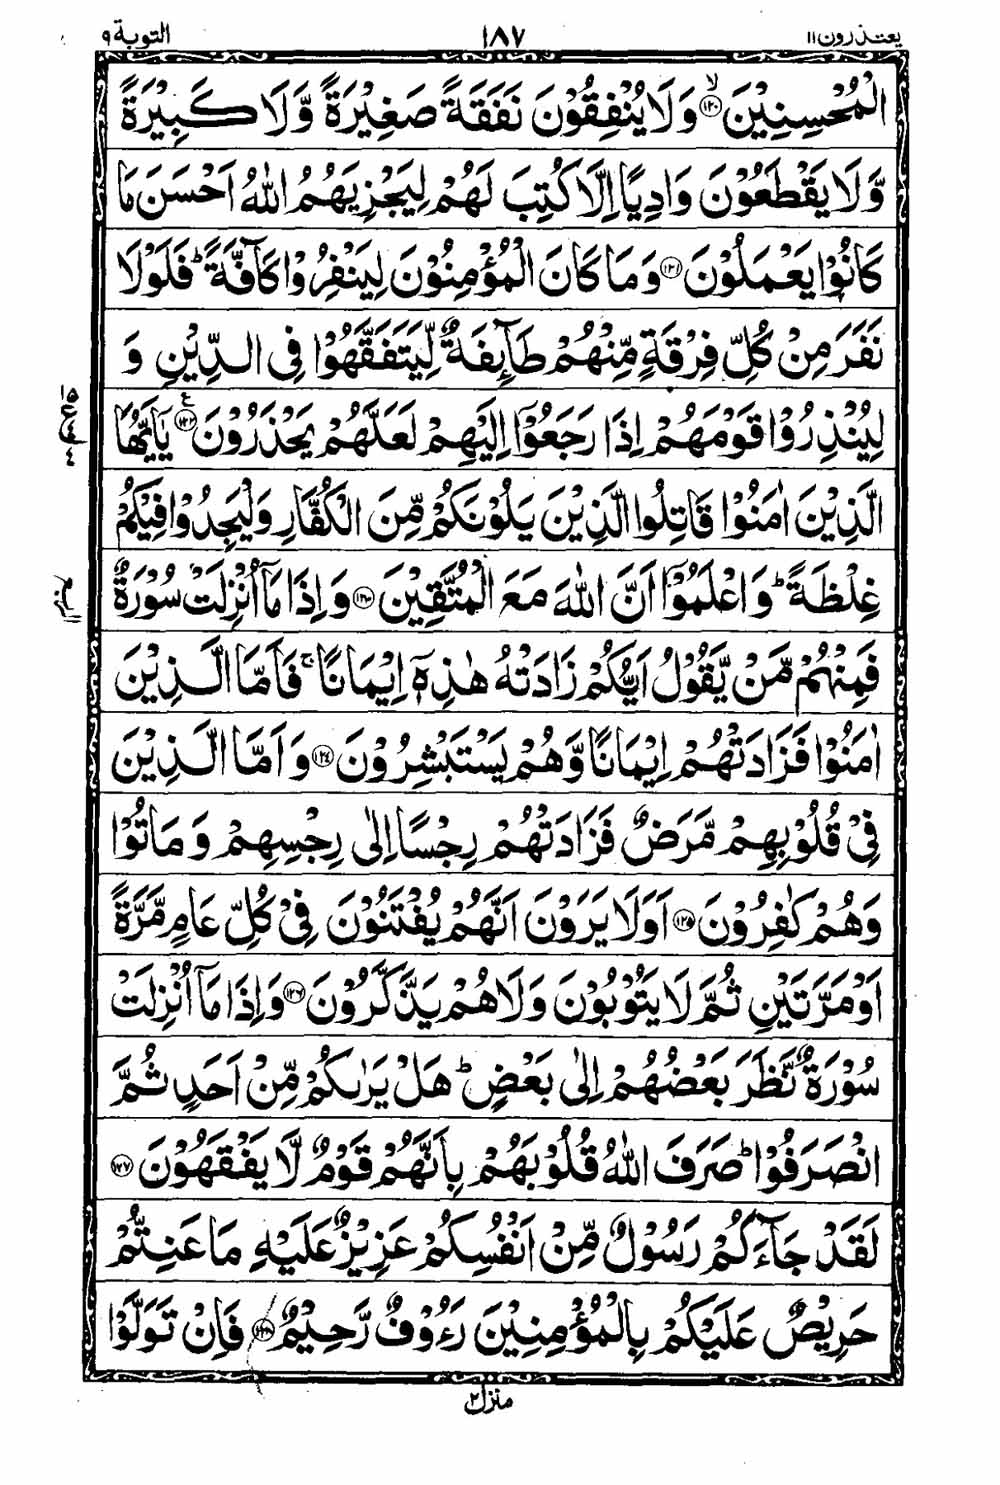 يعتذرون ١١ ١٨٧ التوبة ٩
الْمُحْسِنِيْنَ ۙ﴿١٢٠﴾ وَلَا يُنْفِقُوْنَ نَفَقَةً صَغِيْرَةً وَّلَا كَبِيْرَةً
وَّلَا يَقْطَعُوْنَ وَادِيًا اِلَّا كُتِبَ لَهُمْ لِيَجْزِيَهُمُ اللّٰهُ اَحْسَنَ مَا
كَانُوْا يَعْمَلُوْنَ ﴿١٢١﴾ وَمَا كَانَ الْمُؤْمِنُوْنَ لِيَنْفِرُوْا كَآفَّةً ؕ فَلَوْلَا
نَفَرَ مِنْ كُلِّ فِرْقَةٍ مِّنْهُمْ طَآئِفَةٌ لِّيَتَفَقَّهُوْا فِى الدِّيْنِ وَ
لِيُنْذِرُوْا قَوْمَهُمْ اِذَا رَجَعُوْٓا اِلَيْهِمْ لَعَلَّهُمْ يَحْذَرُوْنَ ﴿١٢٢﴾ع يٰٓاَيُّهَا
الَّذِيْنَ اٰمَنُوْا قَاتِلُوا الَّذِيْنَ يَلُوْنَكُمْ مِّنَ الْكُفَّارِ وَلْيَجِدُوْا فِيْكُمْ
غِلْظَةً ؕ وَاعْلَمُوْٓا اَنَّ اللّٰهَ مَعَ الْمُتَّقِيْنَ ﴿١٢٣﴾ وَاِذَا مَآ اُنْزِلَتْ سُوْرَةٌ
فَمِنْهُمْ مَّنْ يَّقُوْلُ اَيُّكُمْ زَادَتْهُ هٰذِهٖٓ اِيْمَانًا ۚ فَاَمَّا الَّذِيْنَ
اٰمَنُوْا فَزَادَتْهُمْ اِيْمَانًا وَّهُمْ يَسْتَبْشِرُوْنَ ﴿١٢٤﴾ وَاَمَّا الَّذِيْنَ
فِىْ قُلُوْبِهِمْ مَّرَضٌ فَزَادَتْهُمْ رِجْسًا اِلٰى رِجْسِهِمْ وَمَاتُوْا
وَهُمْ كٰفِرُوْنَ ﴿١٢٥﴾ اَوَلَا يَرَوْنَ اَنَّهُمْ يُفْتَنُوْنَ فِىْ كُلِّ عَامٍ مَّرَّةً
اَوْ مَرَّتَيْنِ ثُمَّ لَا يَتُوْبُوْنَ وَلَا هُمْ يَذَّكَّرُوْنَ ﴿١٢٦﴾ وَاِذَا مَآ اُنْزِلَتْ
سُوْرَةٌ نَّظَرَ بَعْضُهُمْ اِلٰى بَعْضٍ ؕ هَلْ يَرٰىكُمْ مِّنْ اَحَدٍ ثُمَّ
انْصَرَفُوْا ؕ صَرَفَ اللّٰهُ قُلُوْبَهُمْ بِاَنَّهُمْ قَوْمٌ لَّا يَفْقَهُوْنَ ﴿١٢٧﴾
لَقَدْ جَآءَكُمْ رَسُوْلٌ مِّنْ اَنْفُسِكُمْ عَزِيْزٌ عَلَيْهِ مَا عَنِتُّمْ
حَرِيْصٌ عَلَيْكُمْ بِالْمُؤْمِنِيْنَ رَءُوْفٌ رَّحِيْمٌ ﴿١٢٨﴾ فَاِنْ تَوَلَّوْا
منزل ٢